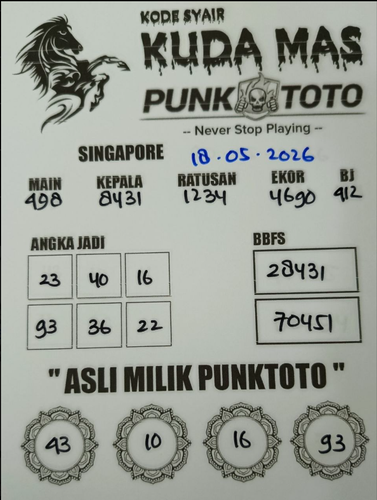 KODE SYAIR
KUDA MAS
PUNK TOTO
-- Never Stop Playing --
SINGAPORE 18.05.2026
MAIN KEPALA RATUSAN EKOR BJ
498 8431 1234 4690 412
ANGKA JADI BBFS
23 40 16 28431
93 36 22 70451
" ASLI MILIK PUNKTOTO "
43 10 16 93